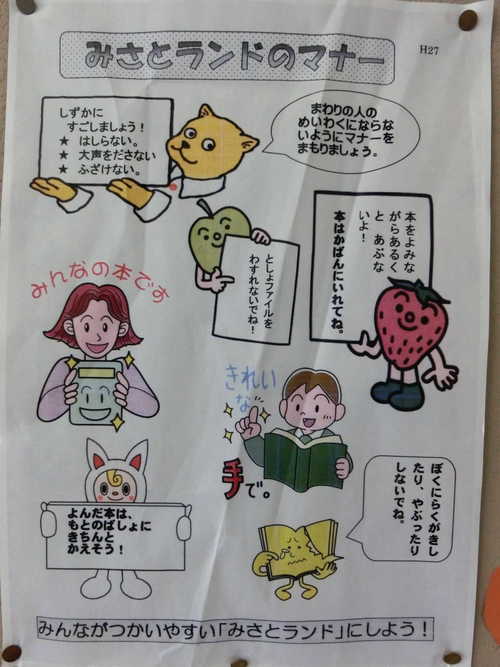 みさとランドのマナー
H27
しずかに
すごしましょう！
★ はしらない。
★ 大声をださない
★ ふざけない。
まわりの人の
めいわくにならな
いようにマナーを
まもりましょう。
本をよみな
がらあるく
と あぶな
いよ！
本はかばんにいれてね。
としょファイルを
わすれないでね！
みんなの本です
きれい
な
手で。
よんだ本は、
もとのばしょに
きちんと
かえそう！
ぼくにらくがきし
たり、やぶったり
しないでね。
みんながつかいやすい「みさとランド」にしよう！